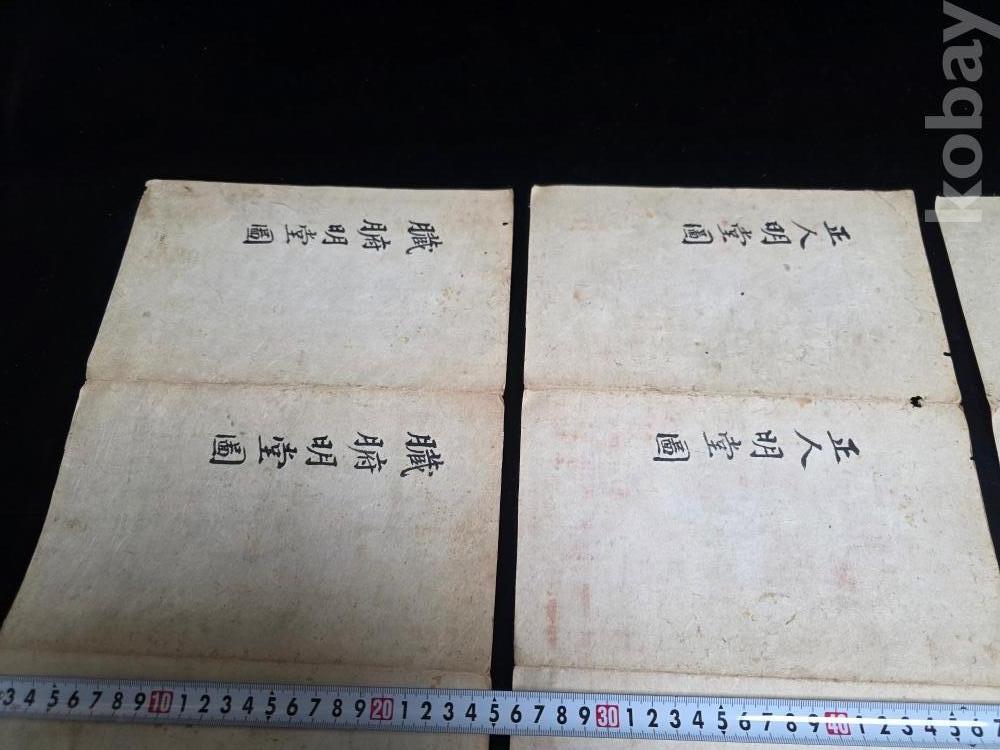 kobay
臟腑明堂圖
正人明堂圖
臟腑明堂圖
正人明堂圖
3 4 5 6 7 8 9 10 1 2 3 4 5 6 7 8 9 20 1 2 3 4 5 6 7 8 9 30 1 2 3 4 5 6 7 8 9 40 1 2 3 4 5 6